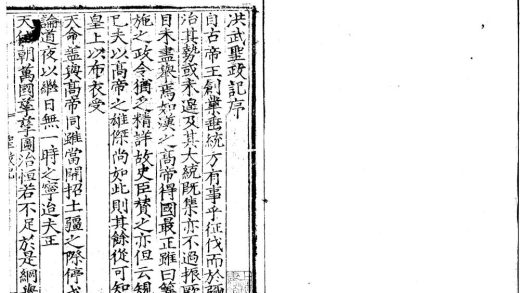 洪武聖政記序
自古帝王創業垂統方有事乎征伐而於彊
治其勢或未遑及其大統既集亦不過振厥
目未盡舉焉如漢之高帝得國最正雖曰
施之政令猶乏精詳故史臣贊之亦但云規
已夫以高帝之雄傑尚如此則其餘從可知
皇上以布衣受
天命蓋與高帝同雖當開招土疆之際停戈
論道夜以繼日無一時之寧迨夫正
天位朝萬國孳孳圖治恒若不足於是綱與
聖政記